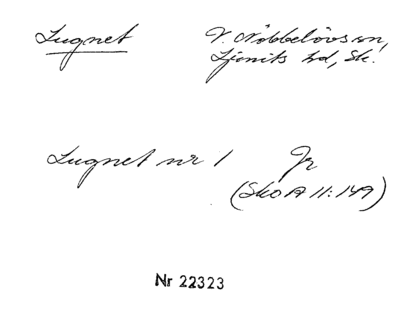 Lugnet
V. Nöbbelövs sn,
Ljunits hd, Sk.
Lugnet nr 1 Jr
(SkO A 11:149)
Nr 22323